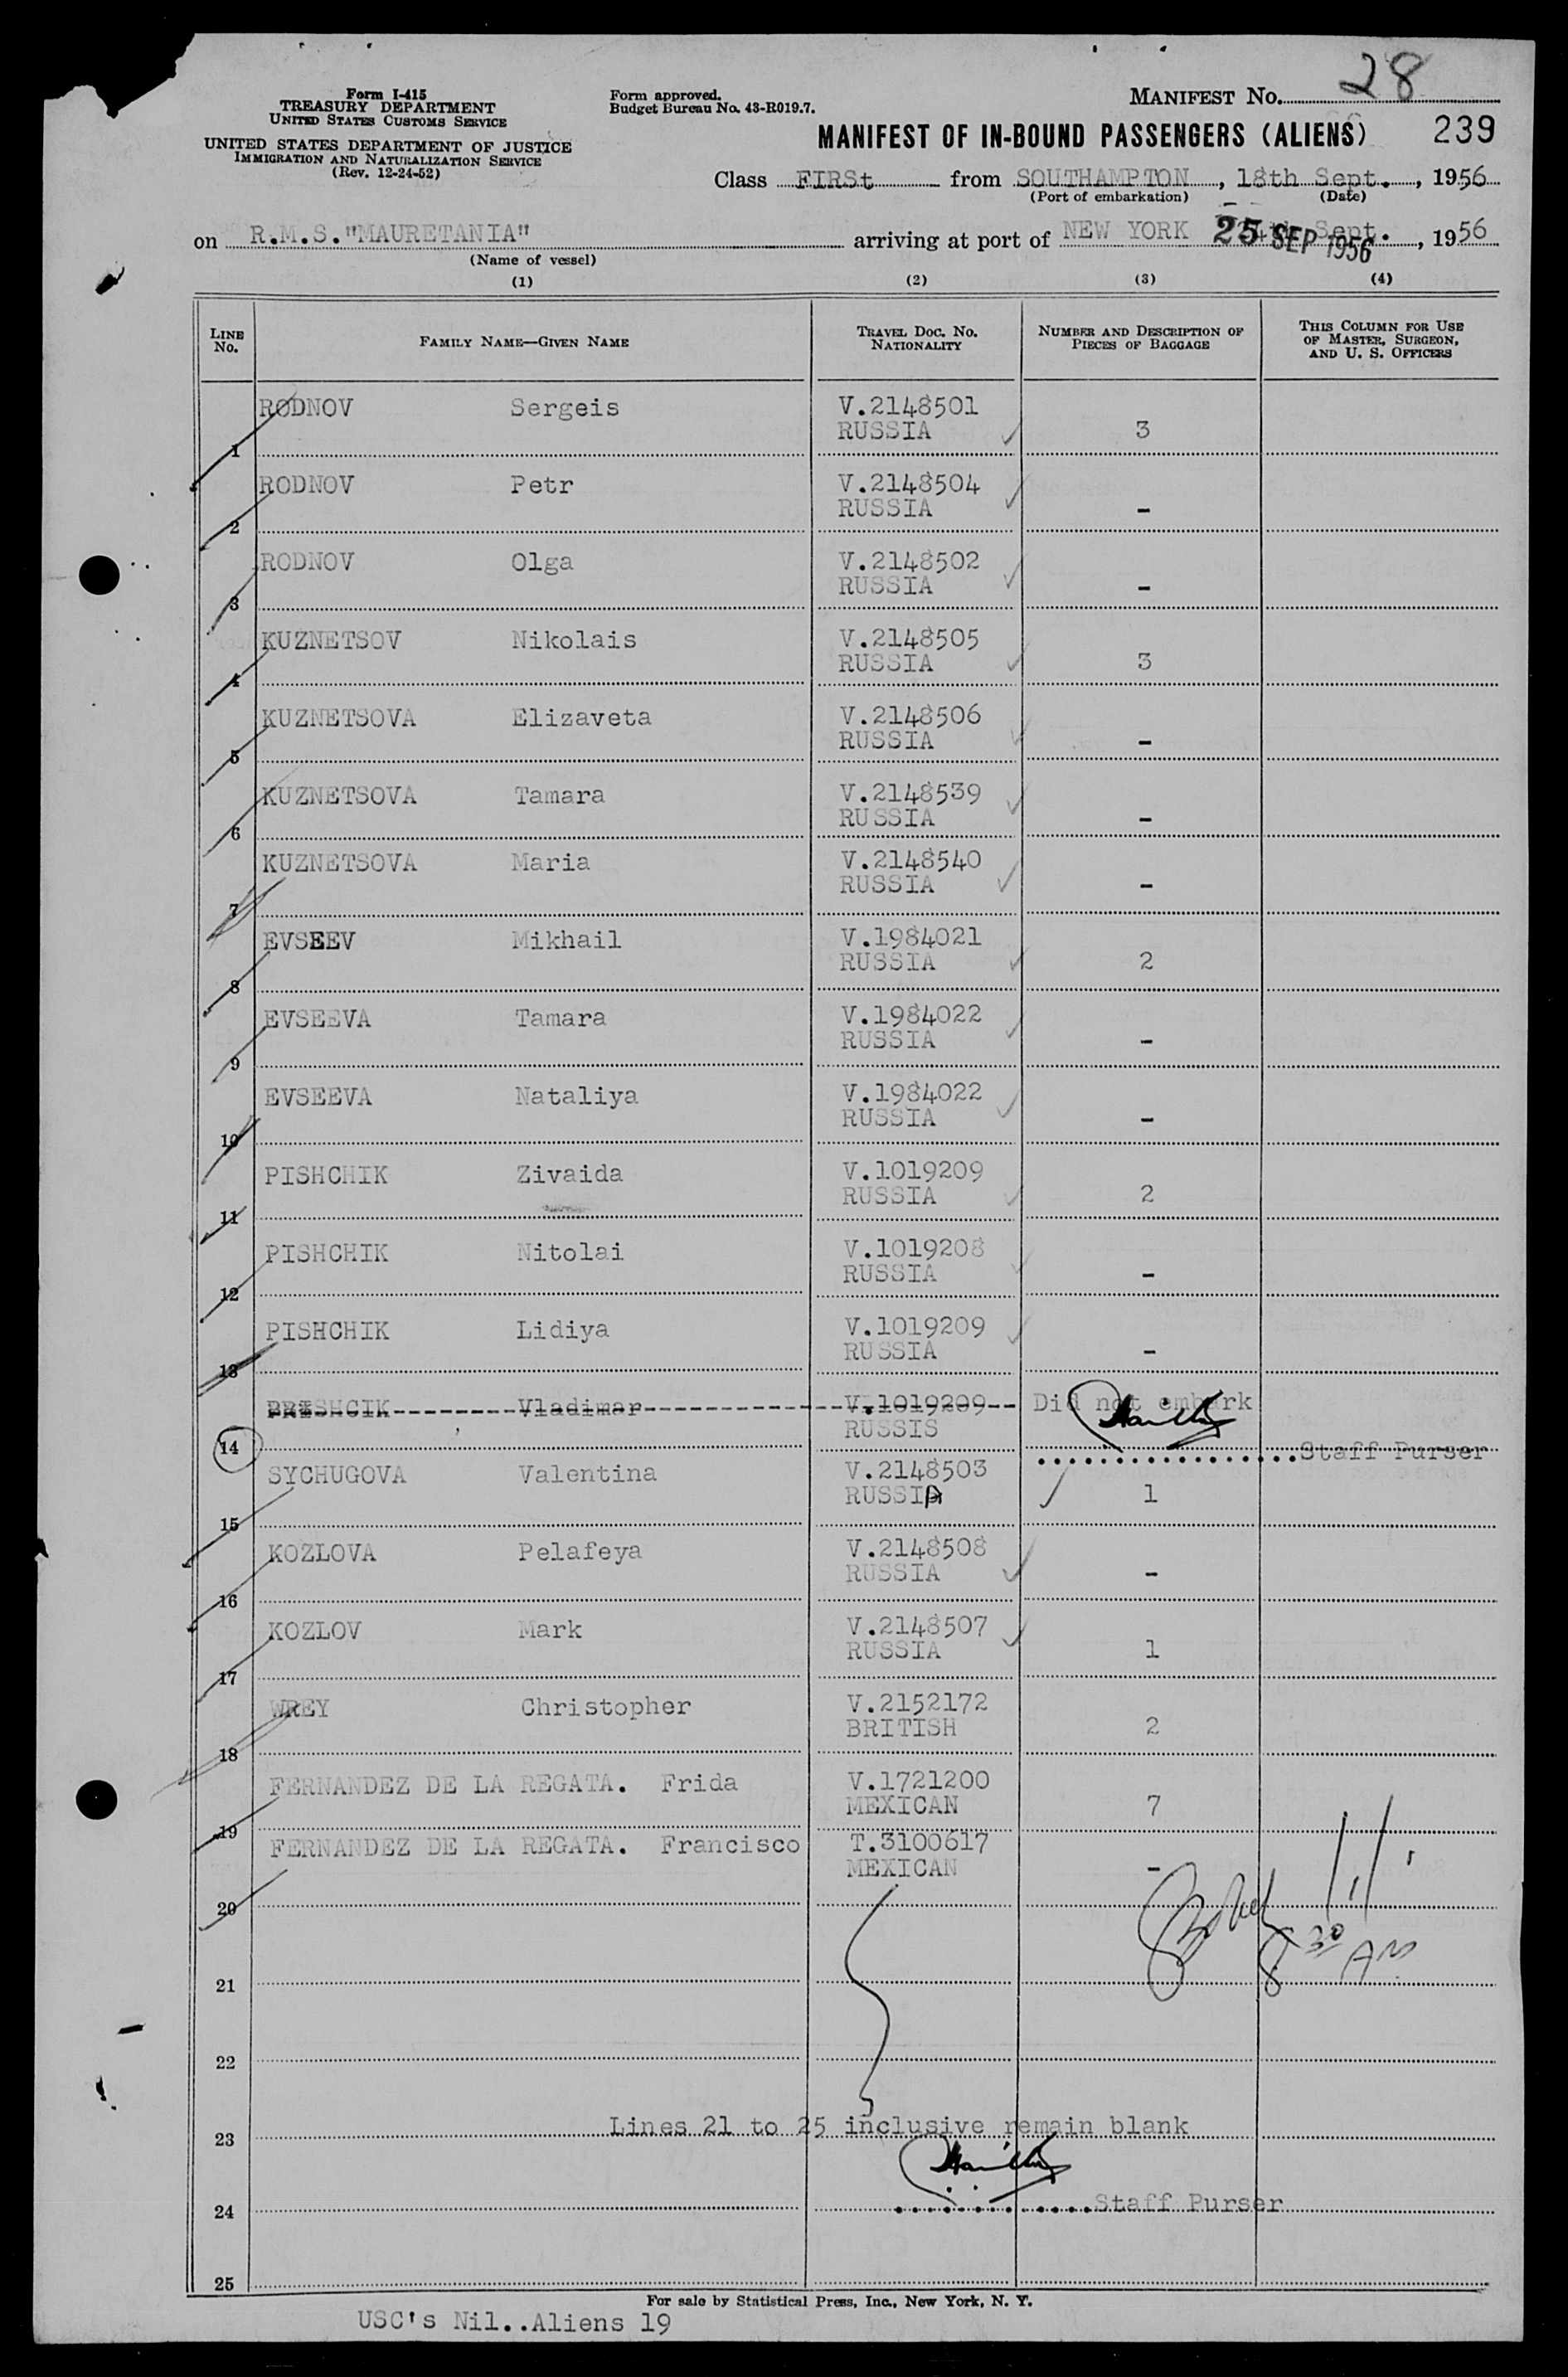 28
Form I-415
TREASURY DEPARTMENT
UNITED STATES CUSTOMS SERVICE
UNITED STATES DEPARTMENT OF JUSTICE
IMMIGRATION AND NATURALIZATION SERVICE
(Rev. 12-24-52)
Form approved.
Budget Bureau No. 43-R019.7.
MANIFEST NO.
MANIFEST OF IN-BOUND PASSENGERS (ALIENS) 239
Class FIRSt from SOUTHAMPTON, 18th Sept., 1956
(Port of embarkation) (Date)
on R.M.S."MAURETANIA" arriving at port of NEW YORK 25 SEP 1956 Sept., 1956
(Name of vessel)
(1) (2) (3) (4)
LINE NO. FAMILY NAME—GIVEN NAME TRAVEL DOC. NO. NATIONALITY NUMBER AND DESCRIPTION OF PIECES OF BAGGAGE THIS COLUMN FOR USE OF MASTER, SURGEON, AND U. S. OFFICERS
RODNOV Sergeis V.2148501
1 RUSSIA 3
RODNOV Petr V.2148504
2 RUSSIA -
RODNOV Olga V.2148502
3 RUSSIA -
KUZNETSOV Nikolais V.2148505
4 RUSSIA 3
KUZNETSOVA Elizaveta V.2148506
5 RUSSIA -
KUZNETSOVA Tamara V.2148539
6 RUSSIA -
KUZNETSOVA Maria V.2148540
7 RUSSIA -
EVSEEV Mikhail V.1984021
8 RUSSIA 2
EVSEEVA Tamara V.1984022
9 RUSSIA -
EVSEEVA Nataliya V.1984022
10 RUSSIA -
PISHCHIK Zivaida V.1019209
11 RUSSIA 2
PISHCHIK Nitolai V.1019208
12 RUSSIA -
PISHCHIK Lidiya V.1019209
13 RUSSIA -
Vladimar V.1019209 Did not embark
14 RUSSIS Staff Purser
SYCHUGOVA Valentina V.2148503
15 RUSSIA 1
KOZLOVA Pelafeya V.2148508
16 RUSSIA -
KOZLOV Mark V.2148507
17 RUSSIA 1
WREY Christopher V.2152172
18 BRITISH 2
FERNANDEZ DE LA REGATA. Frida V.1721200
19 MEXICAN 7
FERNANDEZ DE LA REGATA. Francisco T.3100617
20 MEXICAN -
8 30 AM
21
22
23 Lines 21 to 25 inclusive remain blank
24 Staff Purser
25
For sale by Statistical Press, Inc., New York, N. Y.
USC's Nil..Aliens 19